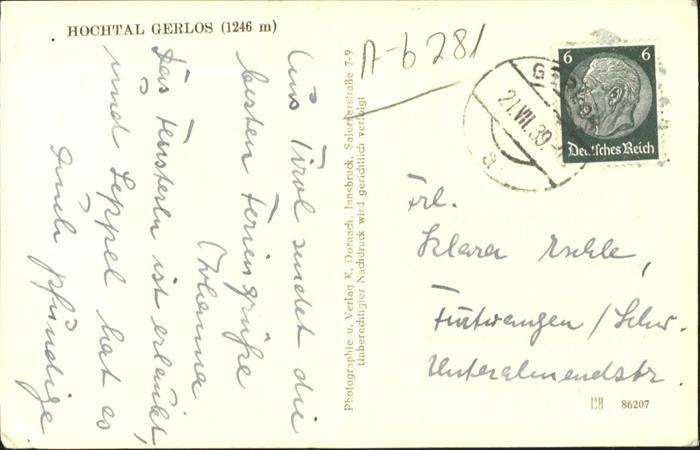 HOCHTAL GERLOS (1246 m)
Aus Tirol sendet die
besten Feriengrüße
Johanna
Das Fensterln ist erlaubt,
und Seppel hat es
auch pfundige
Photographie u. Verlag K. Dornach, Innsbruck, Salurnerstraße 7-9
Unberechtigter Nachdruck wird gerichtlich verfolgt
A-b 281
21.VII.39
a
6 6
Deutsches Reich
Frl.
Klara Eschle,
Furtwangen / Schw.
Unteralmendstr.
86207